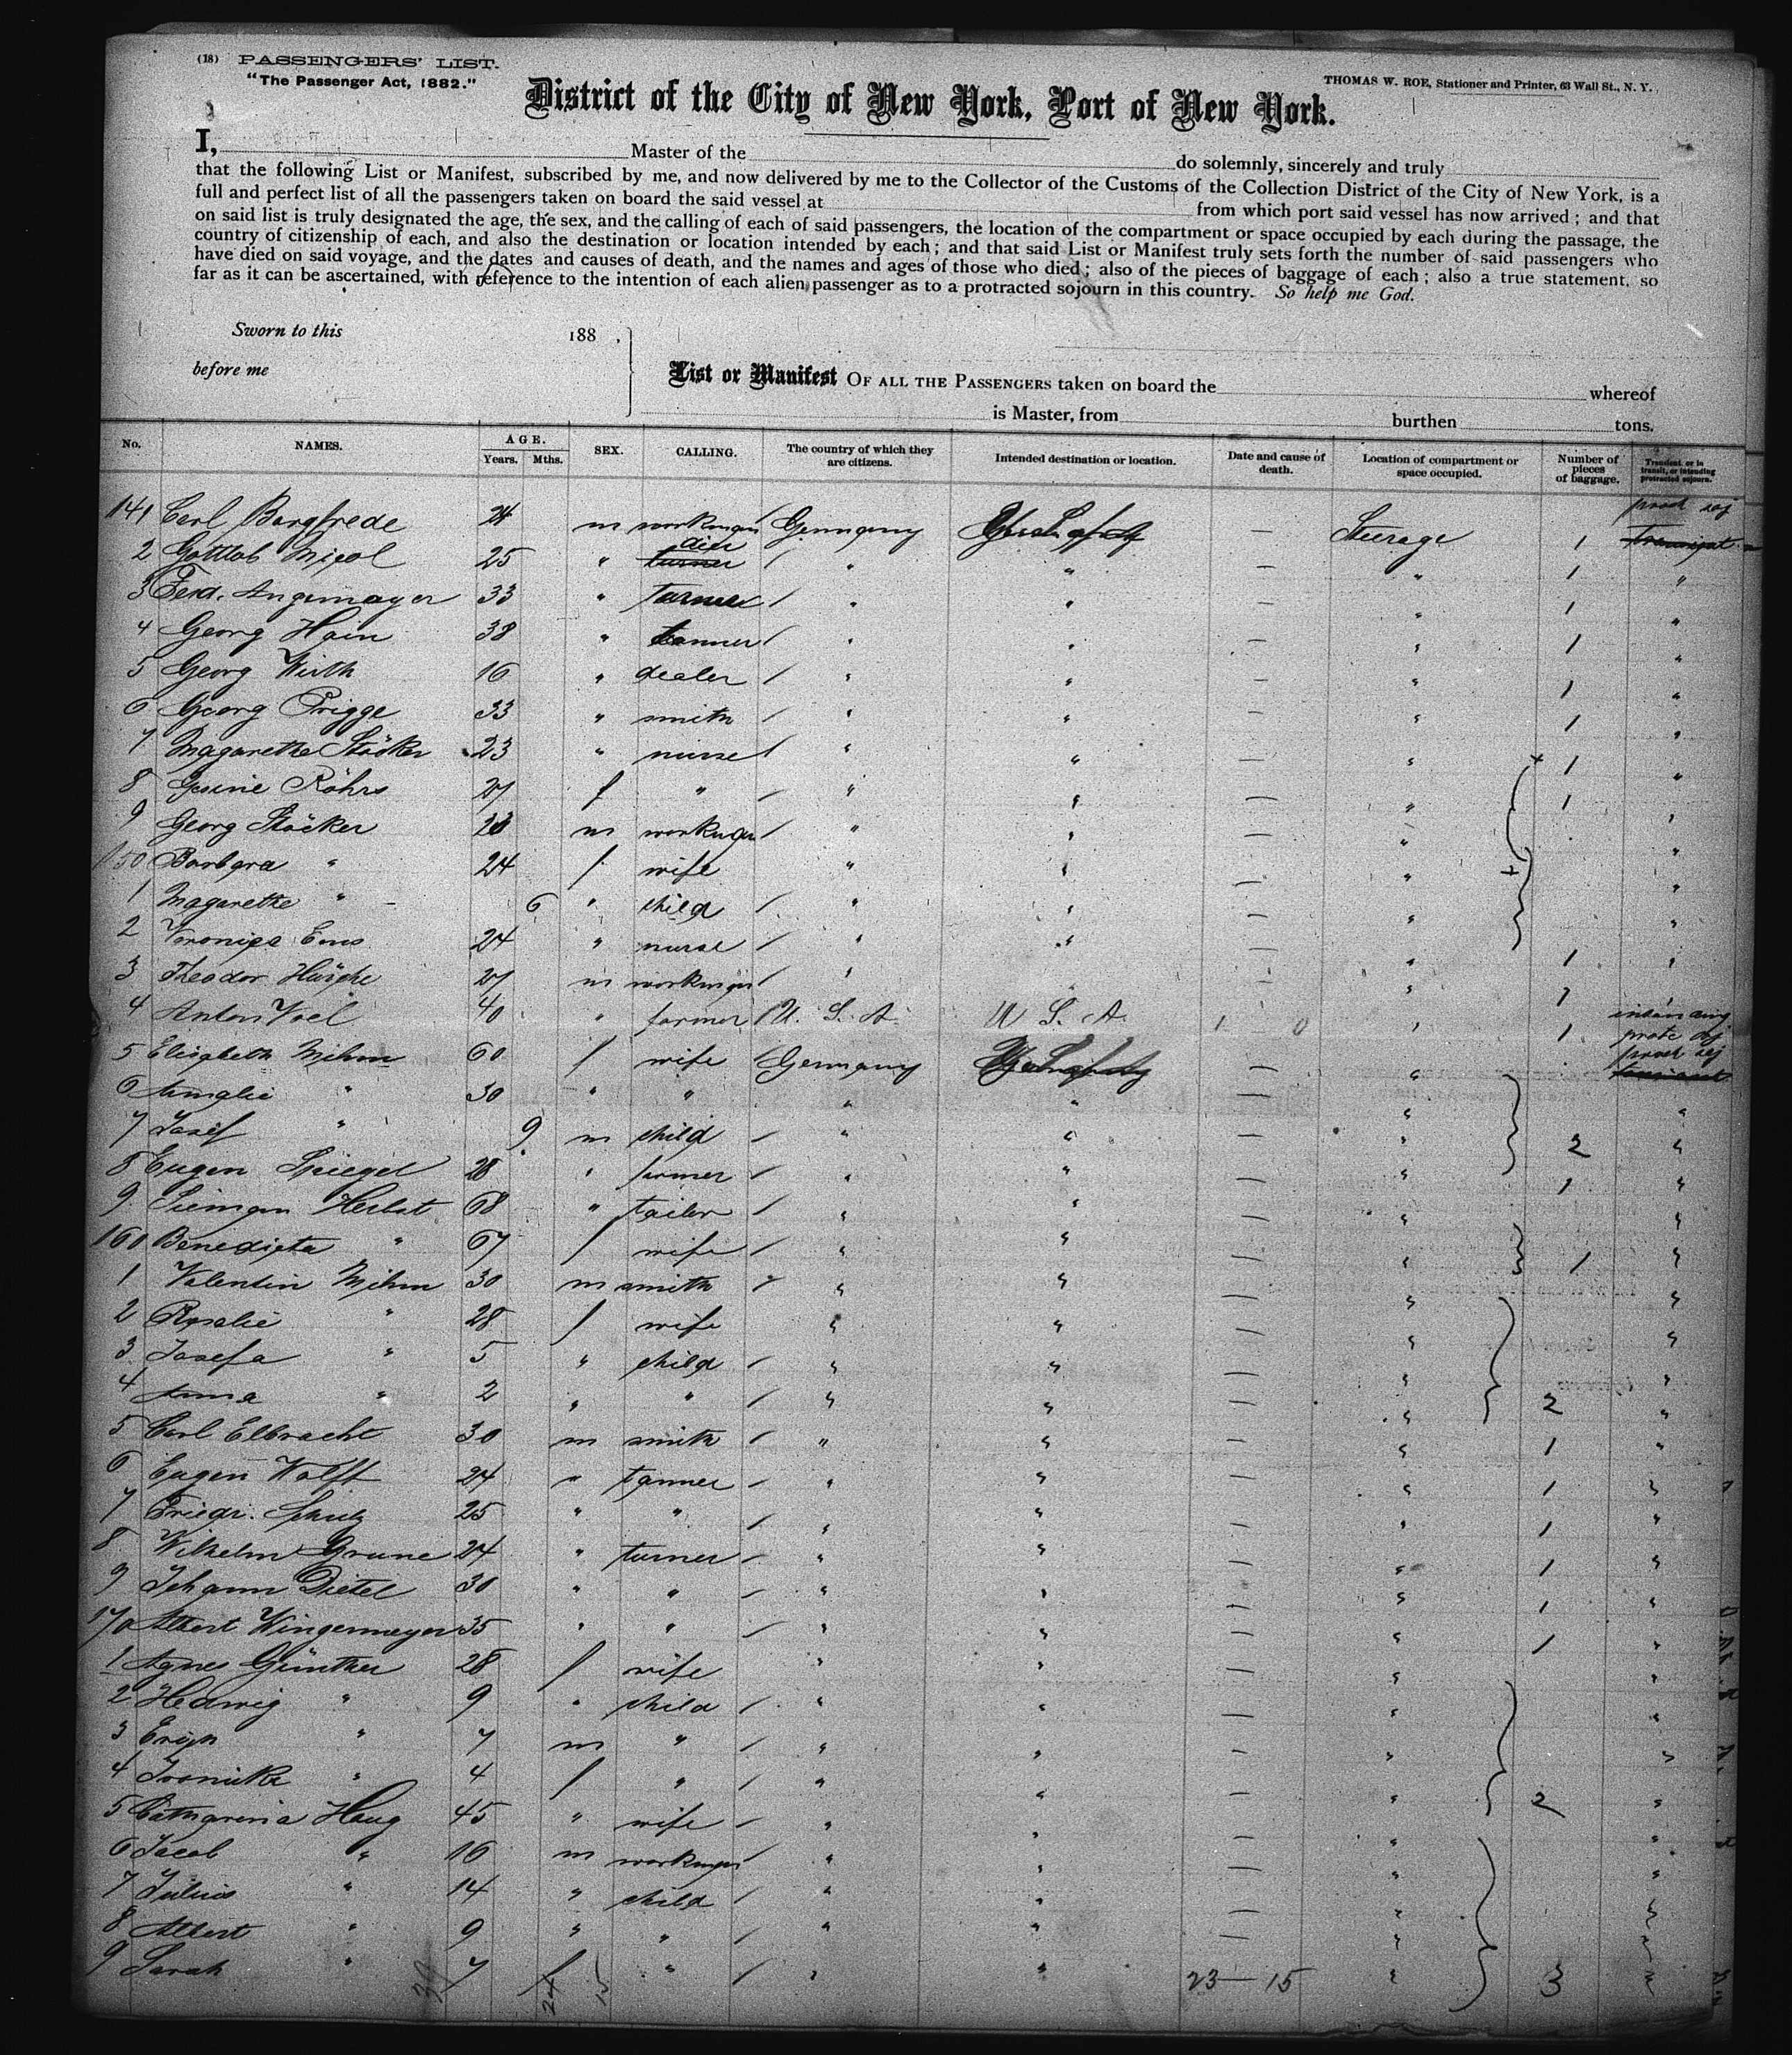 (18) PASSENGERS' LIST.
"The Passenger Act, 1882."
THOMAS W. ROE, Stationer and Printer, 63 Wall St., N. Y.
District of the City of New York, Port of New York.
I, Master of the do solemnly, sincerely and truly
that the following List or Manifest, subscribed by me, and now delivered by me to the Collector of the Customs of the Collection District of the City of New York, is a
full and perfect list of all the passengers taken on board the said vessel at from which port said vessel has now arrived; and that
on said list is truly designated the age, the sex, and the calling of each of said passengers, the location of the compartment or space occupied by each during the passage, the
country of citizenship of each, and also the destination or location intended by each; and that said List or Manifest truly sets forth the number of said passengers who
have died on said voyage, and the dates and causes of death, and the names and ages of those who died; also of the pieces of baggage of each; also a true statement, so
far as it can be ascertained, with reference to the intention of each alien passenger as to a protracted sojourn in this country. So help me God.
Sworn to this 188 ,
before me
List or Manifest OF ALL THE PASSENGERS taken on board the whereof
is Master, from burthen tons.
No. NAMES. AGE. Years. Mths. SEX. CALLING. The country of which they are citizens. Intended destination or location. Date and cause of death. Location of compartment or space occupied. Number of pieces of baggage. Transient, or in transit, or intending protracted sojourn.
141 Carl Borgfrede 24 m workman Germany — Steerage 1
2 Gottlob 25 " turner " " — " 1 "
3 Ferd. Angermayer 33 " turner " " — " 1 "
4 Georg Hain 38 " tanner " " — " 1 "
5 Georg Wirth 16 " dealer " " — " 1 "
6 Georg Prigge 33 " smith " " — " 1 "
7 Magarethe Stöcker 23 " nurse " " — " 1 "
8 Gesine Röhrs 27 f " " " — " 1 "
9 Georg Stöcker 23 m workman " " — " "
150 Barbara " 24 f wife " " — " "
1 Magarethe " 6 " child " " — " "
2 Veronica Ems 24 " nurse " " — " 1 "
3 Theodor 27 m workman " " — " 1 "
4 Anton 40 " farmer U. S. A. U. S. A. " 1
5 Elisabeth Mihm 60 f wife Germany — "
6 Amalie " 30 " " " " — " "
7 Josef " 9 m child " " — " 2 "
8 Eugen Spiegel 28 " farmer " " — " 1 "
9 Herbst 68 " tailor " " — " "
160 Benedicta " 67 f wife " " — " 1 "
1 Valentin Mihm 30 m smith " " — " "
2 Rosalie " 28 f wife " " — " "
3 Josefa " 5 " child " " — " "
4 Anna " 2 " " " " — " 2 "
5 Carl Elbracht 30 m smith " " — " 1 "
6 Eugen Wolff 24 " tanner " " — " 1 "
7 Friedr. Schulz 25 " " " " — " 1 "
8 Wilhelm Grune 24 " turner " " — " 1 "
9 Johann Dietel 30 " " " " — " 1 "
170 Albert Wingermeyer 35 " " " " — " 1 "
1 Agnes Günther 28 f wife " " — " "
2 Hedwig " 9 " child " " — " "
3 Erich " 7 m " " " — " "
4 " 4 f " " " — " 2 "
5 Catharina Haug 45 " wife " " — " "
6 Jacob " 16 m workman " " — " "
7 Julius " 14 " child " " — " "
8 Albert " 9 " " " " — " "
9 Sarah " 7 f " " " 23 — 15 " 3 "
39 24 15